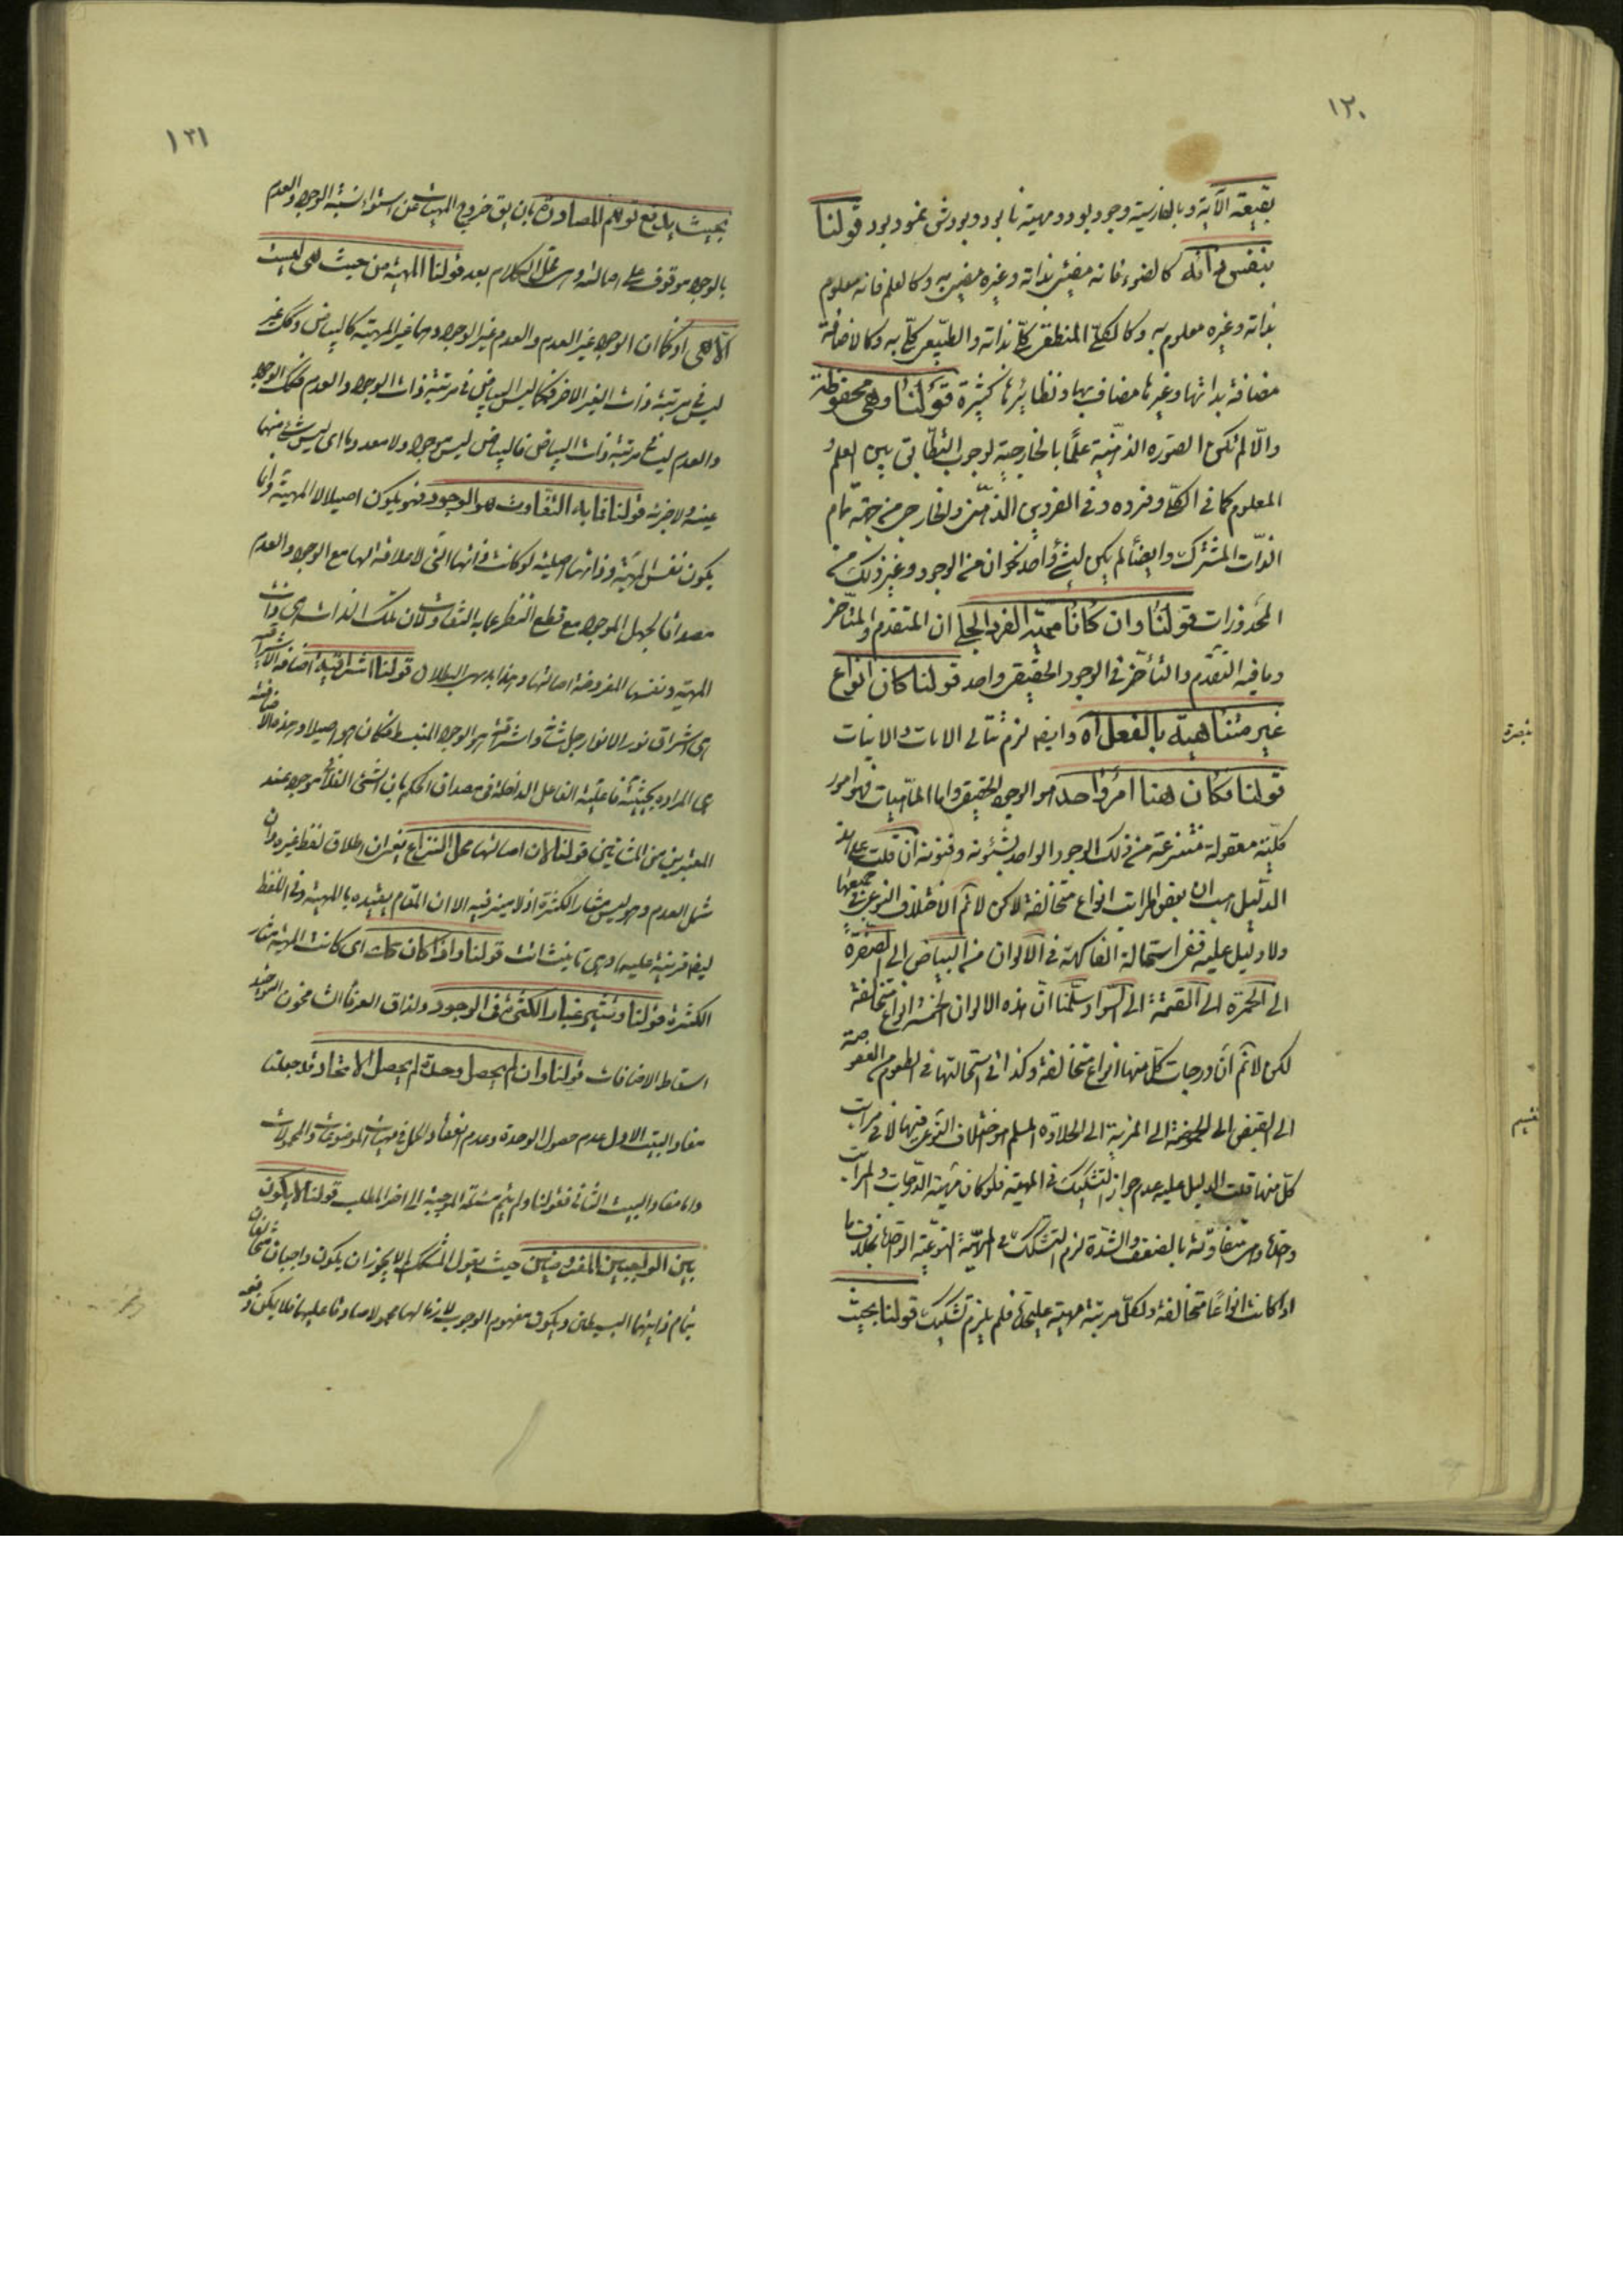 ١٢٠
بقيعة الآية وبالفارسية وجود بود ومهية نابود وبودش نمود بود قولنا
بنفس ذاته كالضوء فانه مضيئ بذاته وغيره مضيئ به وكالعلم فانه معلوم
بذاته وغيره معلوم به وكالكلي المنطقي كلي بذاته والطبيعي كلي به وكالاضافة
مضافة بذاتها وغيرها مضاف بها ونظايرها كثيرة قولنا وهي محفوظة
والا لم تكن الصورة الذهنية علما بالخارجية لوجوب التطابق بين العلم و
المعلوم كما في الكلي وفرده وفي الفردين الذهني والخارجي من جهة تمام
الذات المشترك وايضا لم يكن لشئ واحد نحوان من الوجود وغير ذلك من
المحذورات قولنا وان كانا مهية الفرد الجلي ان المتقدم والمتاخر
وما فيه التقدم والتأخر في الوجود الحقيقي واحد قولنا كان انواع
غير متناهية بالفعل اه وايضا لزم تتالي الانات والانيات
قولنا فكان هنا امر واحد هو الوجود الحقيقي واما الماهيات فهو امور
كلية معقولة منتزعة من ذلك الوجود الواحد بشئونه وفنونه ان قلت على هذا
الدليل هب ان بعض المراتب انواع متخالفة لاكن لا نم الاختلاف النوعي في جميعها
ولا دليل عليه ففي استحالة الفاكهة في الالوان من البياض الى الصفرة
الى الحمرة الى القتمة الى السواد سلمنا ان هذه الالوان الخمسة انواع متخالفة
لكن لا نم ان درجات كل منها انواع متخالفة وكذا في استحالتها في الطعوم من العفوصة
الى القبض الى الحموضة الى المزية الى الحلاوة المسلم هو اختلاف النوعي فيها لا في مراتب
كل منها قلت الدليل عليه عدم جواز التشكيك في المهية فلو كان مهية الدرجات والمراتب
واحدة وهي متفاوتة بالضعف والشدة لزم التشكيك في الماهية النوعية الواحدة بخلاف ما
اذا كانت انواعا متخالفة ولكل مرتبة مهية عليحدة فلم يلزم تشكيك قولنا بحيث
١٢١
بحيث يدفع توهم المصادرة بان يق خروج المهيات عن استواء نسبة الوجود والعدم
بالوجود موقوف على اصالته وهي محل الكلام بعد قولنا المهية من حيث هي ليست
الا هي اذ كما ان الوجود غير العدم والعدم غير الوجود وهما غير المهية كالبياض وكل غير
ليس في مرتبة ذات الغير الاخر فكما ليس البياض في مرتبة ذات الوجود والعدم فكك الوجود
والعدم ليسا في مرتبة ذات البياض فالبياض ليس موجودا ولا معدوما اي ليس شئ منهما
عينه ولا جزئه قولنا فما به التفاوت هو الوجود فهو يكون اصيلا لا المهية وانما
يكون نفس المهية وذاتها اصيلة لو كانت ذاتها التي لا علاقة لها مع الوجود والعدم
مصداقا لحمل الموجود مع قطع النظر عما به التفاوت لان تلك الذات هي ذات
المهية ونفسها المفروضة اصالتها وهذا بديهي البطلان قولنا اشراقية اضافة الاشراقية
هي اشراق نور الانوار جل شانه واشراقه هو الوجود المنبسط فكان هو اصيلا وهذه الاضافة
هي المراده بحيثية فاعلية الفاعل الداخلة في مصداق الحكم بان الشئ الفلاني موجود عند
المعتبرين من المشائين قولنا لان اصالتها محل النزاع يعني ان اطلاق لفظ غيره وان
شمل العدم وهو ليس مثار الكثرة اذ لا ميز فيه الا ان المقام يقيده بالمهية وفي اللفظ
ايضا قرينة عليه وهي تانيث اتت قولنا واذا كان كلت اي كانت المهية مثار
الكثرة قولنا وتثير غبار الكثرة في الوجود ولذاق العرفا الشامخون التوحيد
اسقاط الاضافات قولنا وان لم يحصل وحدة لم يحصل الاتحاد قد جعلنا
مفاد البيت الاول عدم حصول الوحدة وعدم انعقاد الحمل في مهيات الموضوعات والمحمولات
واما مفاد البيت الثاني فقولنا ولم يتم مسئلة التوحيد الى اخر المطلب قولنا لا يكون
بين الواجبين المفروضين حيث يقول المشكك لم لا يجوز ان يكون واجبان متخالفان
بتمام ذاتيهما البسيطتين ويكون مفهوم الوجوب لازما لهما محمولا صادقا عليهما فلا يكن دفعه